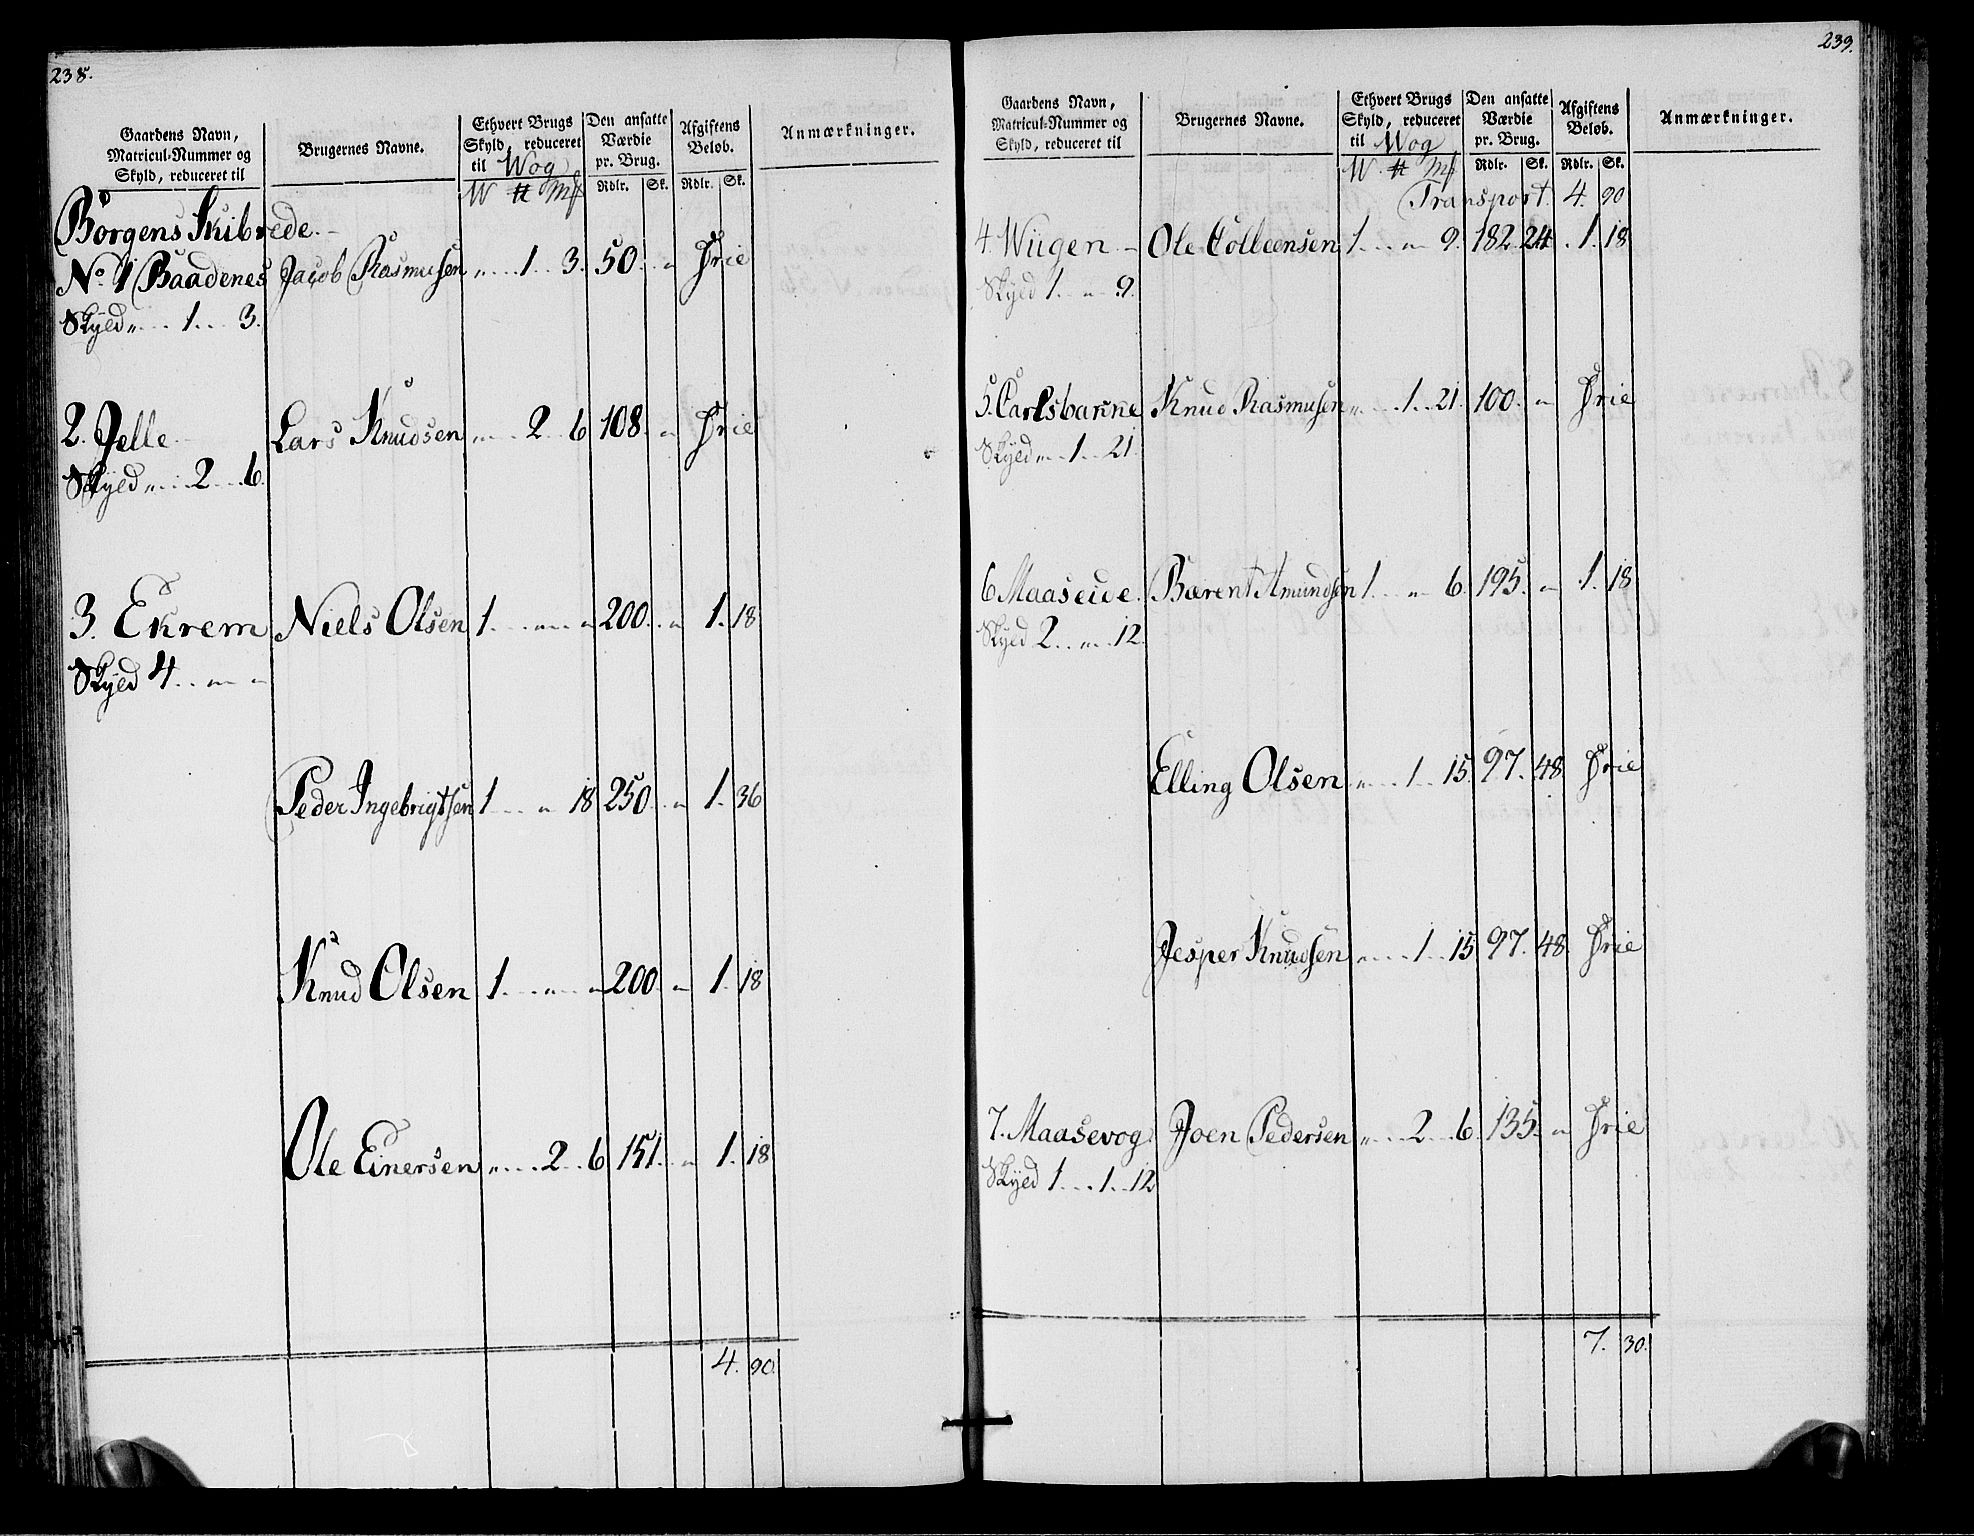 238.
Gaardens Navn, Matricul-Nummer og Skyld, reduceret til
Brugernes Navne.
Ethvert Brugs Skyld, reduceret til Wog
W ℔ Mk
Den ansatte Værdie pr. Brug.
Rdlr. Sk.
Afgiftens Beløb.
Rdlr. Sk.
Anmærkninger.
Borgens Skibrede.
No. 1 Baadenes Jacob Rasmusen „ 1 3. 50. „ Frie
Skyld „ 1 3.
2. Jelle Lars Knudsen „ 2 6 108. „ Frie
Skyld „ 2 6.
3. Ekrem Niels Olsen 1 „ „ 200. „ 1. 18
Skyld 4 „ „
Peder Ingebrigtsen 1 „ 18 250. „ 1. 36
Knud Olsen 1 „ „ 200. „ 1. 18
Ole Einersen „ 2 6 151. „ 1. 18
4. 90.
239.
Gaardens Navn, Matricul-Nummer og Skyld, reduceret til
Brugernes Navne.
Ethvert Brugs Skyld, reduceret til Wog
W ℔ Mk
Den ansatte Værdie pr. Brug.
Rdlr. Sk.
Afgiftens Beløb.
Rdlr. Sk.
Anmærkninger.
Transport. 4. 90
4. Wiigen Ole Colleensen 1 „ 9. 182 24 1. 18
Skyld 1 „ 9.
5. Carlsbarme Knud Rasmusen „ 1 21. 100. „ Frie
Skyld „ 1 21.
6 Maaseide. Bærent Amundsen 1 „ 6. 195. „ 1. 18
Skyld 2 „ 12.
Elling Olsen „ 1 15. 97. 48. Frie
Jesper Knudsen „ 1 15 97. 48. Frie
7. Maasevog Joen Pedersen „ 2 6. 135. „ Frie
Skyld 1 1 12
7. 30.